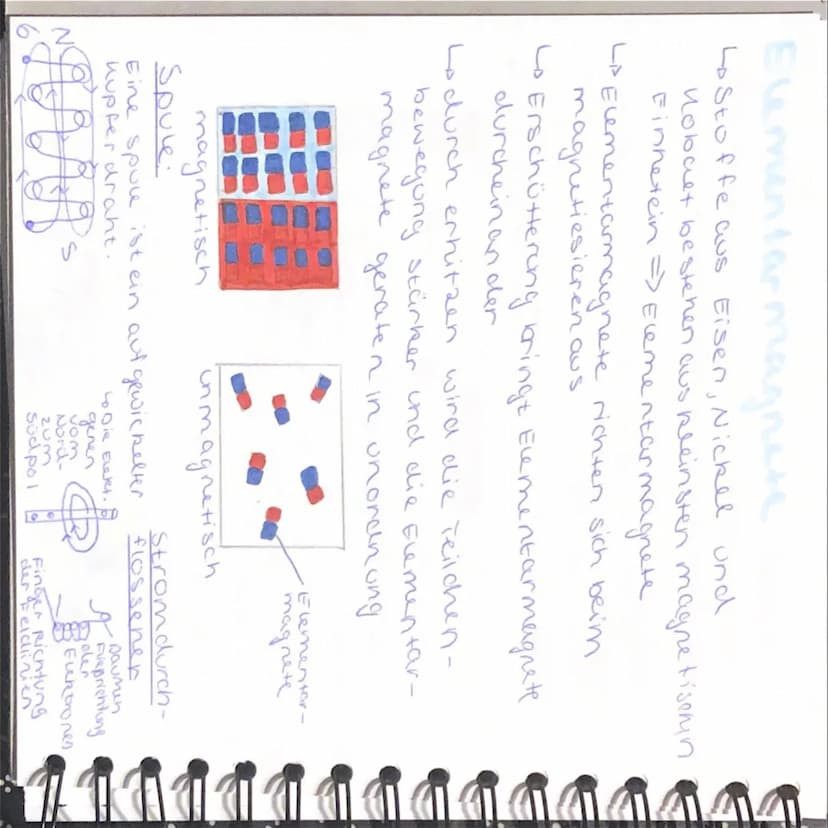 Elementarmagnete
↳ Stoffe aus Eisen, Nickel und
Kobalt bestehen aus kleinsten magnetischen
Einheiten ⇒ Elementarmagnete
↳ Elementarmagnete richten sich beim
magnetiesieren aus
↳ Erschütterung bringt Elementarmagnete
durcheinander
↳ durch erhitzen wird die Teilchen-
bewegung stärker und die Elementar-
magnete geraten in unordnung
magnetisch
unmagnetisch
Elementar-
magnete
Spule:
Eine Spule ist ein aufgewickelter
Kupferdraht.
N
S
6
Stromdurch-
flossener
↳ Die Elekt.
gehen
vom
Nord-
zum
Südpol
Daumen
der
Elektronen
Finger Richtung
der Feldlinien